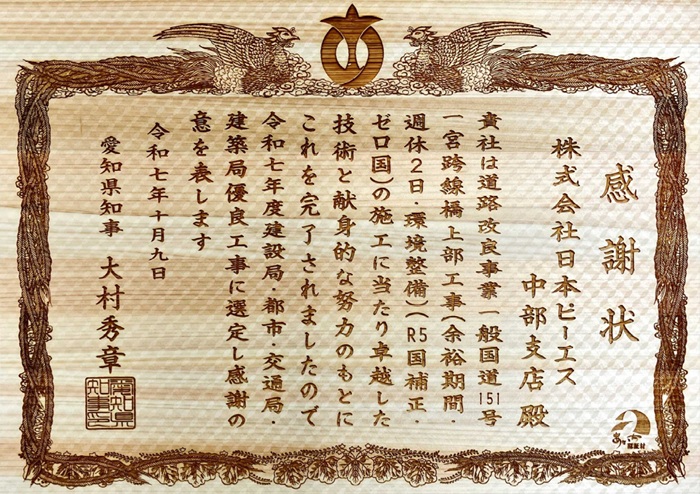 感謝状
株式会社日本ピーエス
中部支店 殿
貴社は道路改良事業一般国道151号
一宮跨線橋上部工事(余裕期間・
週休2日・環境整備)(R5国補正・
ゼロ国)の施工に当たり卓越した
技術と献身的な努力のもとに
これを完了されましたので
令和七年度建設局・都市・交通局・
建築局優良工事に選定し感謝の
意を表します
令和七年十月九日
愛知県知事 大村秀章
愛知県
知事印